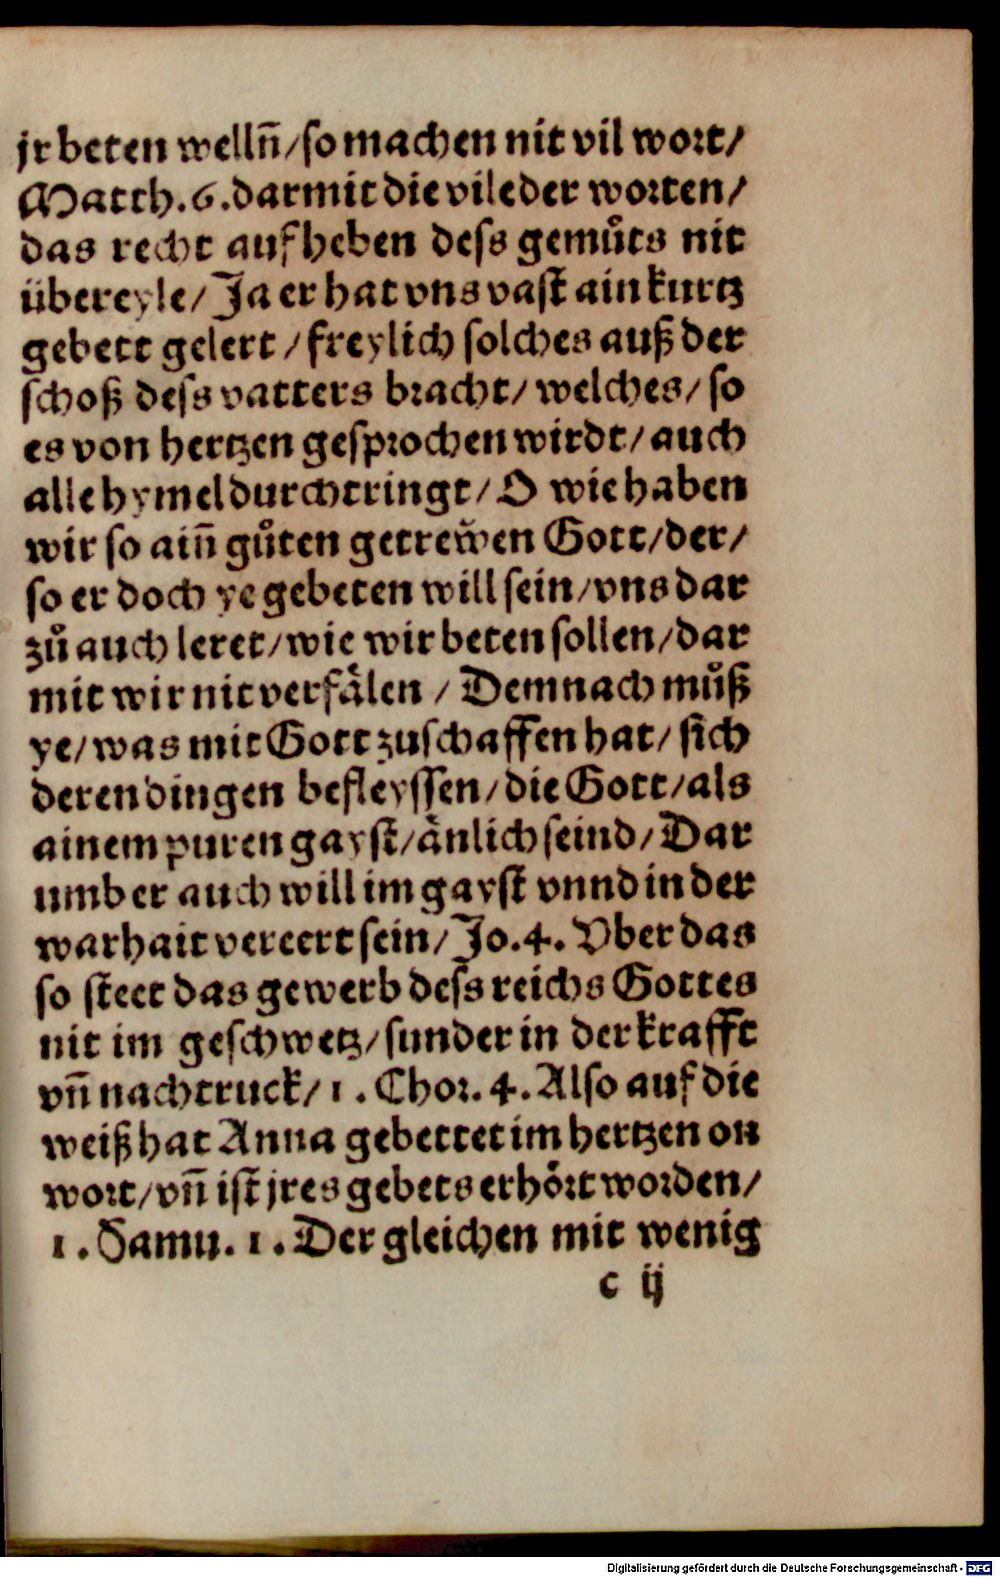 jr beten wellñ/so machen nit vil wort/
Matth.6.darmit die vile der worten/
das recht aufheben deſs gemuͤts nit
übereyle/Ja er hat vns vaſt ain kurtz
gebett gelert/freylich ſolches auß der
ſchoß deſs vatters bracht/welches/ſo
es von hertzen geſprochen wirdt/auch
alle hymel durchtringt/O wie haben
wir ſo aiñ guͦten getrewen Gott/der/
ſo er doch ye gebeten will ſein/vns dar
zuͦ auch leret/wie wir beten ſollen/dar
mit wir nit verfaͤlen/Demnach muͦß
ye/was mit Gott zuſchaffen hat/ſich
deren dingen befleyſſen/die Gott/als
ainem puren gayſt/aͤnlich ſeind/Dar
umb er auch will im gayſt vnnd in der
warhait vereert ſein/Jo.4. Vber das
ſo ſteet das gewerb deſs reichs Gottes
nit im geſchwetz/ſunder in der krafft
vñ nachtruck/1. Chor. 4. Alſo auf die
weiß hat Anna gebettet im hertzen on
wort/vñ iſt jres gebets erhoͤrt worden/
1. Samu. 1. Der gleichen mit wenig
c ij
Digitalisierung gefördert durch die Deutsche Forschungsgemeinschaft - DFG